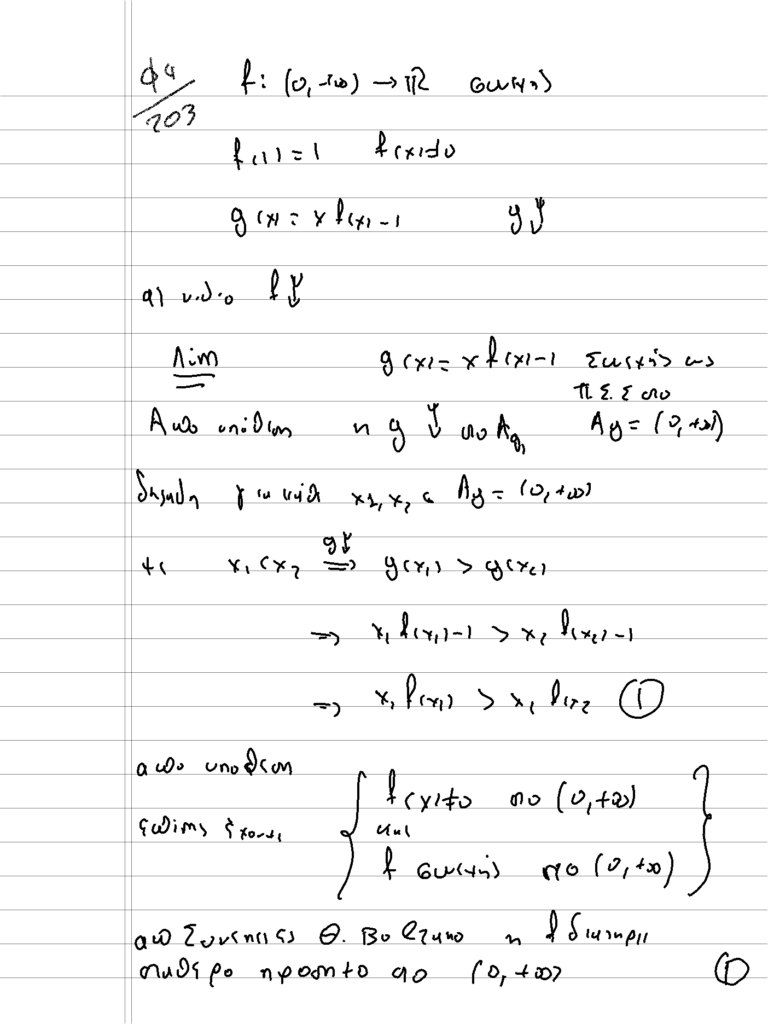 Φ4/203 f: (0,+∞) → ℝ συνεχής
f(1)=1 f(x)≠0
g(x) = x f(x) - 1 g↓
α) ν.δ.ο f↓
Λύση g(x) = x f(x) - 1 Συνεχής ως
Π.Σ.Σ στο
Από υπόθεση η g ↓ στο Ag, Ag = (0,+∞)
δηλαδή για κάθε x1, x2 ε Ag = (0,+∞)
με x1 < x2 ⟹ (g↓) g(x1) > g(x2)
⟹ x1 f(x1) - 1 > x2 f(x2) - 1
⟹ x1 f(x1) > x2 f(x2 ①
από υπόθεση
{ f(x)≠0 στο (0,+∞) }
επίσης έχουμε και
f συνεχής στο (0,+∞)
από Συνέπειες Θ. Bolzano η f διατηρεί
σταθερό πρόσημο στο (0,+∞) ①